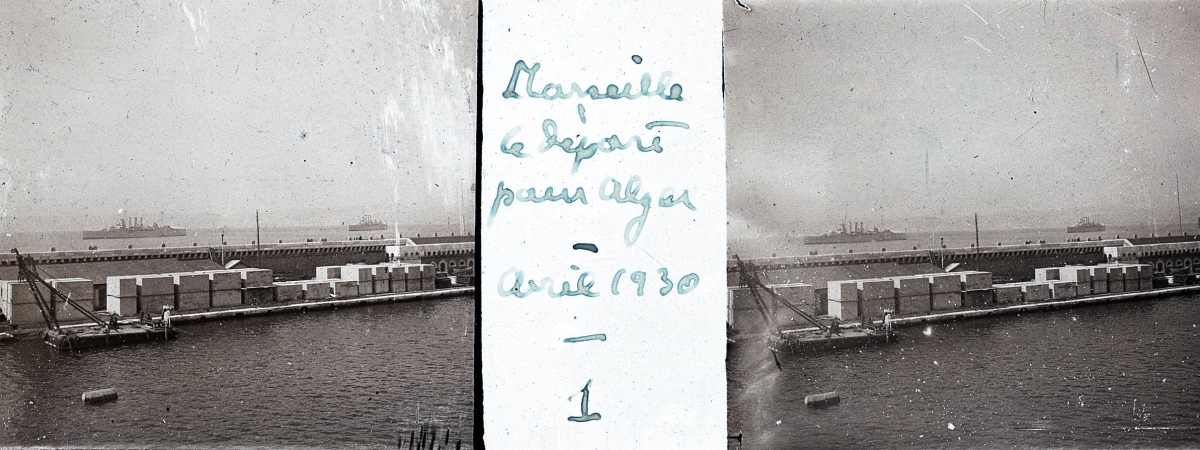 Marseille
le départ
pour Alger
—
Avril 1930
—
1